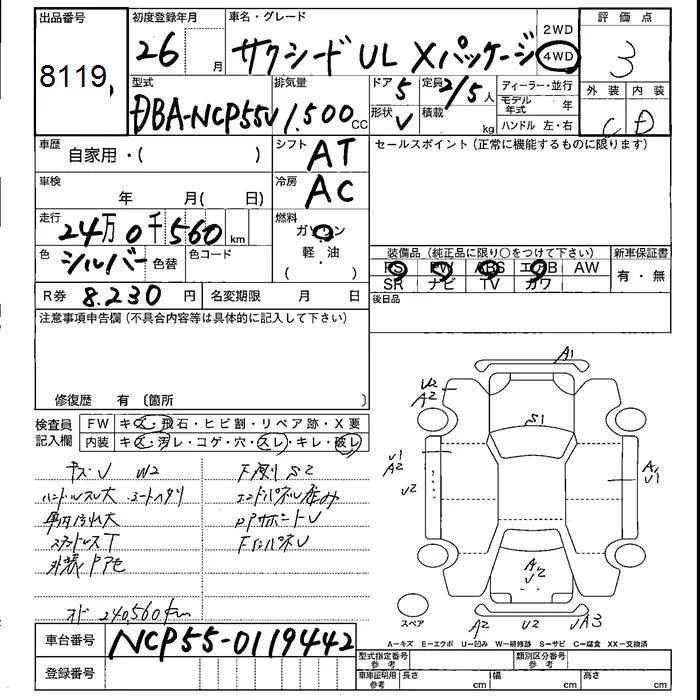 出品番号
8119
初度登録年月
26 月
車名・グレード
サクシード UL Xパッケージ
2WD
4WD
評価点
3
外装 内装
C D
型式
DBA-NCP55V
排気量
1,500 CC
ドア 5
定員 2/5 人
形状 V
積載 kg
ディーラー・並行
モデル年式 年
ハンドル 左・右
車歴
自家用・( )
シフト
AT
車検
年 月( 日)
冷房
AC
走行
24万0千560 km
燃料
ガソリン
軽・油
( )
色
シルバー
色替
色コード
R券 8.230 円
名変期限 月 日
セールスポイント(正常に機能するものに限ります)
装備品(純正品に限り○をつけて下さい)
PS PW ABS エアB AW
SR ナビ TV カワ
新車保証書
有・無
後日品
注意事項申告欄(不具合内容等は具体的に記入して下さい)
修復歴 有〔箇所 〕
検査員
記入欄
FW キズ・飛石・ヒビ割・リペア跡・X要
内装 キズ・汚レ・コゲ・穴・スレ・キレ・破レ
キズU W2
ハンドルスレ大 シートヘタリ
スタッドレスT
オド 240,560km
S2
A1
U2
A2
S1
U1
A2
U2
A1
U1
A2
U2
スペア
A2
U2
UA3
A-キズ E-エクボ U-凹み W-補修跡 S-サビ C-腐食 XX-交換済
車台番号
NCP55-0119442
登録番号
型式指定番号
参考
類別区分番号
参考
車庫証明用
参考
長さ cm
幅 cm
高さ cm